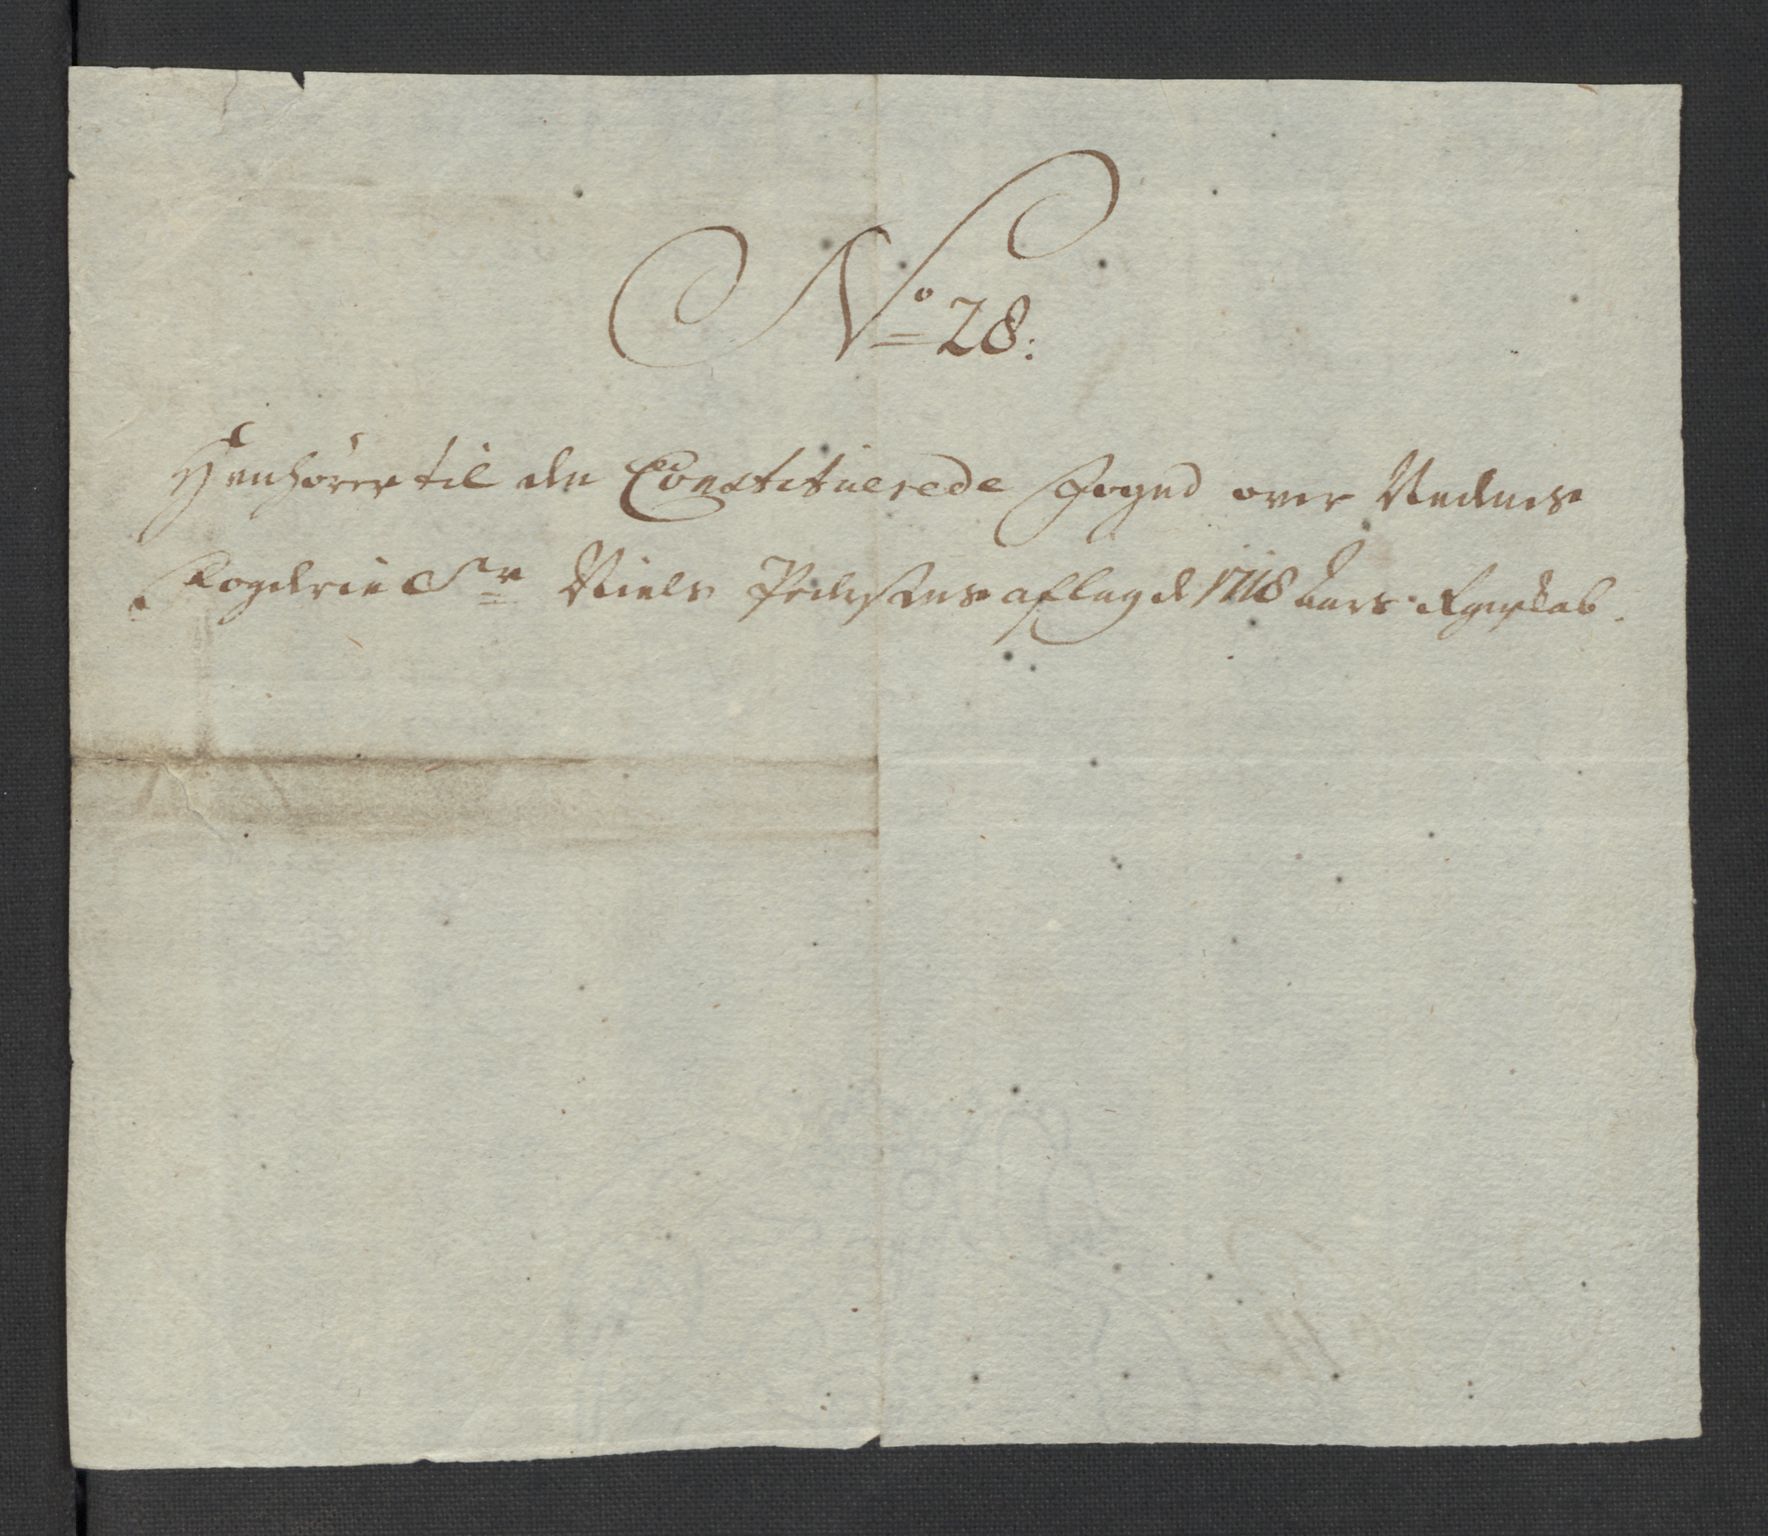 No 28:
Henhører til den Constituerede Fogud over Nednes
Fogderie Sr Niels Pedersens aflagd 1718 Aars Regenskab.